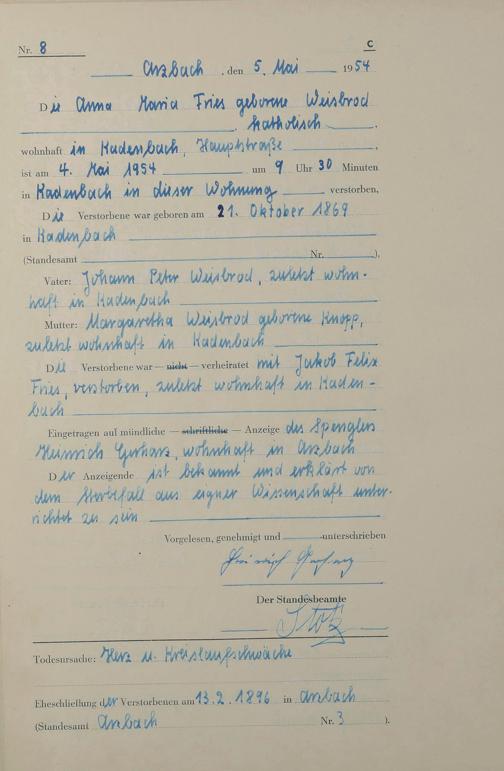 Nr. 8 C
Arzbach, den 5. Mai 1954
Die Anna Maria Fries geborene Weisbrod
, katholisch,
wohnhaft in Kadenbach, Hauptstraße,
ist am 4. Mai 1954 um 9 Uhr 30 Minuten
in Kadenbach in dieser Wohnung verstorben,
Die Verstorbene war geboren am 21. Oktober 1869
in Kadenbach
(Standesamt Nr. ),
Vater: Johann Peter Weisbrod, zuletzt wohn-
haft in Kadenbach
Mutter: Margaretha Weisbrod geborene Knopp,
zuletzt wohnhaft in Kadenbach
Die Verstorbene war — nicht — verheiratet mit Jakob Felix
Fries, verstorben, zuletzt wohnhaft in Kaden-
bach
Eingetragen auf mündliche — schriftliche — Anzeige des Spenglers
Heinrich Gerharz, wohnhaft in Arzbach
Der Anzeigende ist bekannt und erklärt von
dem Sterbefall aus eigner Wissenschaft unter-
richtet zu sein
Vorgelesen, genehmigt und unterschrieben
Heinrich Gerharz
Der Standesbeamte
Todesursache: Herz u. Kreislaufschwäche
Eheschließung der Verstorbenen am 13.2.1896 in Arzbach
(Standesamt Arzbach Nr. 3 ).